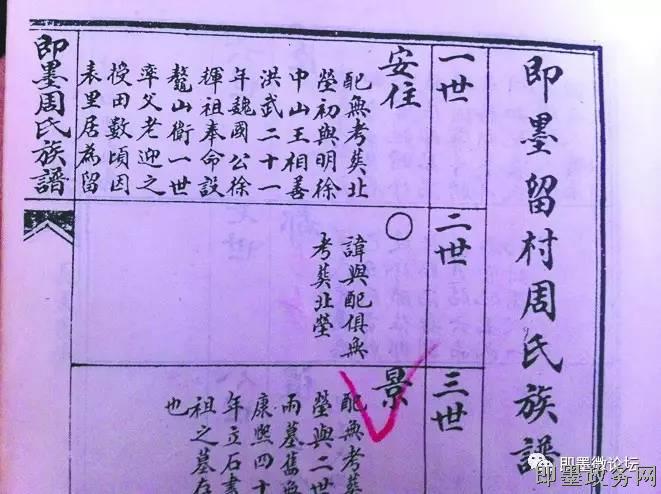 即墨留村周氏族譜
一世
安住
配無考葬北
塋初與明徐
中山王相善
洪武二十一
年魏國公徐
輝祖奉命設
鰲山衛一世
率父老迎之
授田數頃因
表里居為留
二世
○
諱與配俱無
考葬北塋
三世
景
配無考葬
塋與二世
兩墓舊無
康熙四十
年立石書
祖之墓存
也
即墨周氏族譜
即墨微论坛
即墨政务网